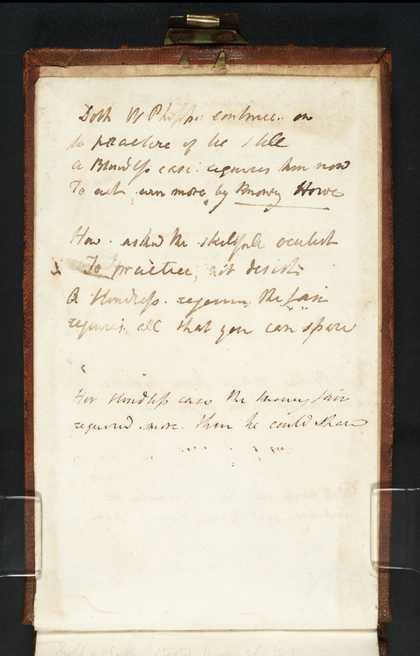 Doth W Phipps continue on
to practice of he still
a Blindness case requires him now
To act even more by Money Howe
How asked the skilfull oculist
To practice, not desist
A blindness requires the fair
requires all that you can spare
For blindness case the money fair
required more than he could share